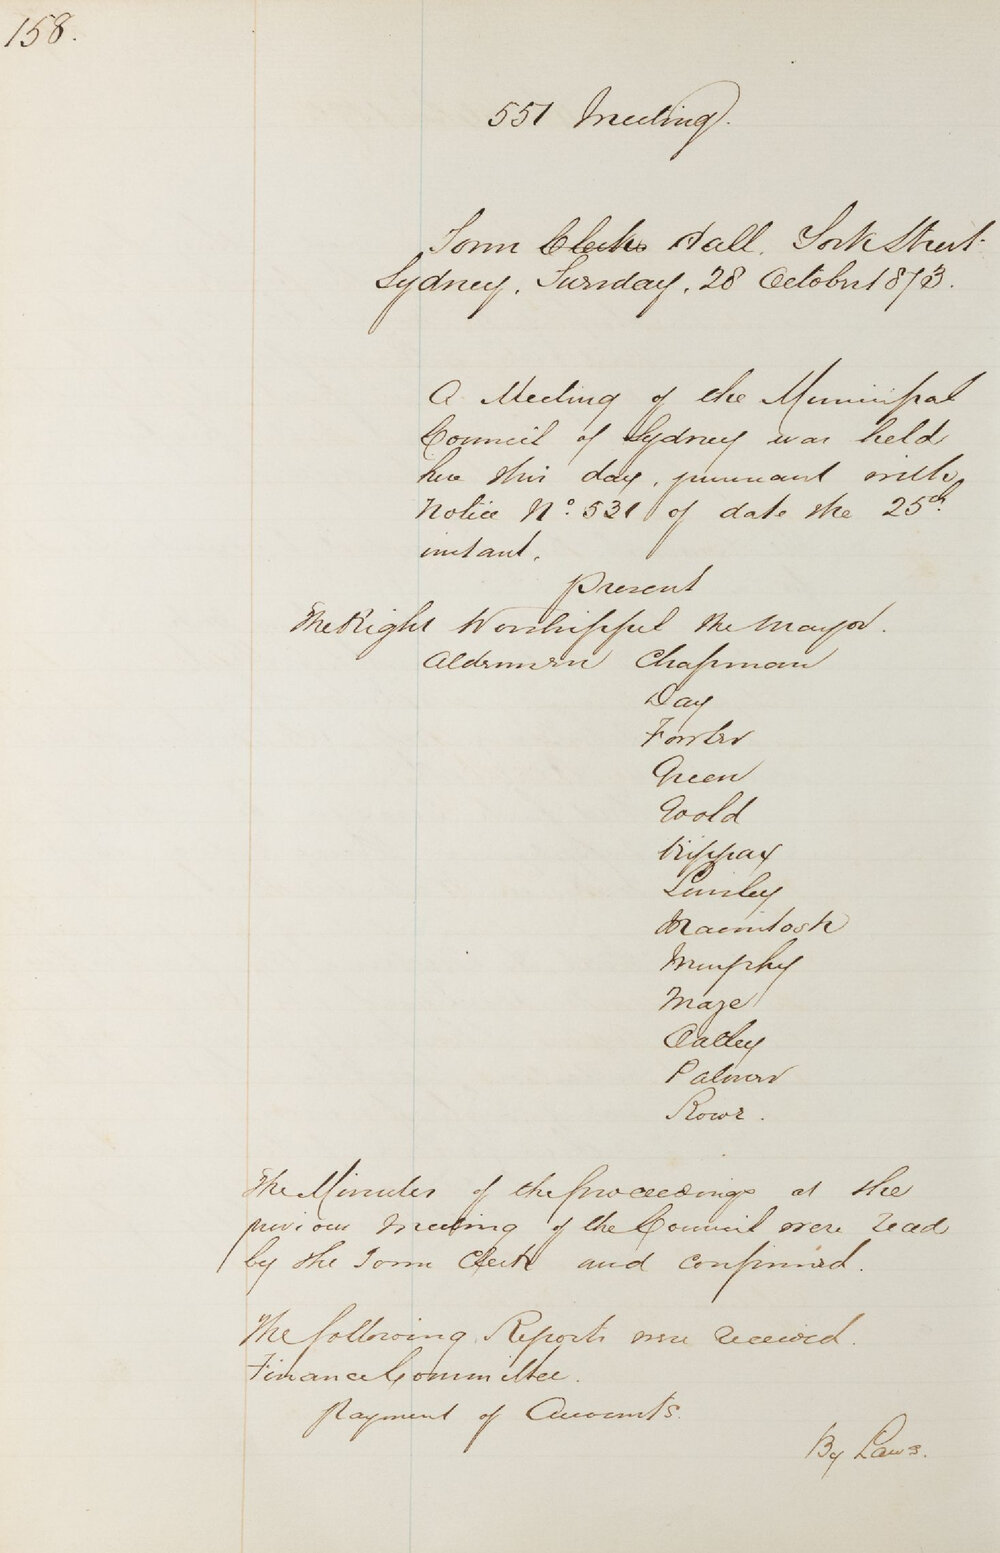 158.
551 Meeting.
Town Clerks Hall. York Street
Sydney, Tuesday, 28 October 1873.
A Meeting of the Municipal
Council of Sydney was held
here this day, pursuant with
Notice No. 531 of date the 25th.
instant.
Present
The Right Worshipful the Mayor.
Aldermen Chapman
Day
Fowler
Green
Goold
Hippax
Linsley
Macintosh
Murphy
Maze
Oatley
Palmer
Rowe.
The Minutes of the proceedings at the
previous Meeting of the Council were read
by the Town Clerk and confirmed.
The following Reports were received.
Finance Committee.
Payment of Accounts.
By Laws.